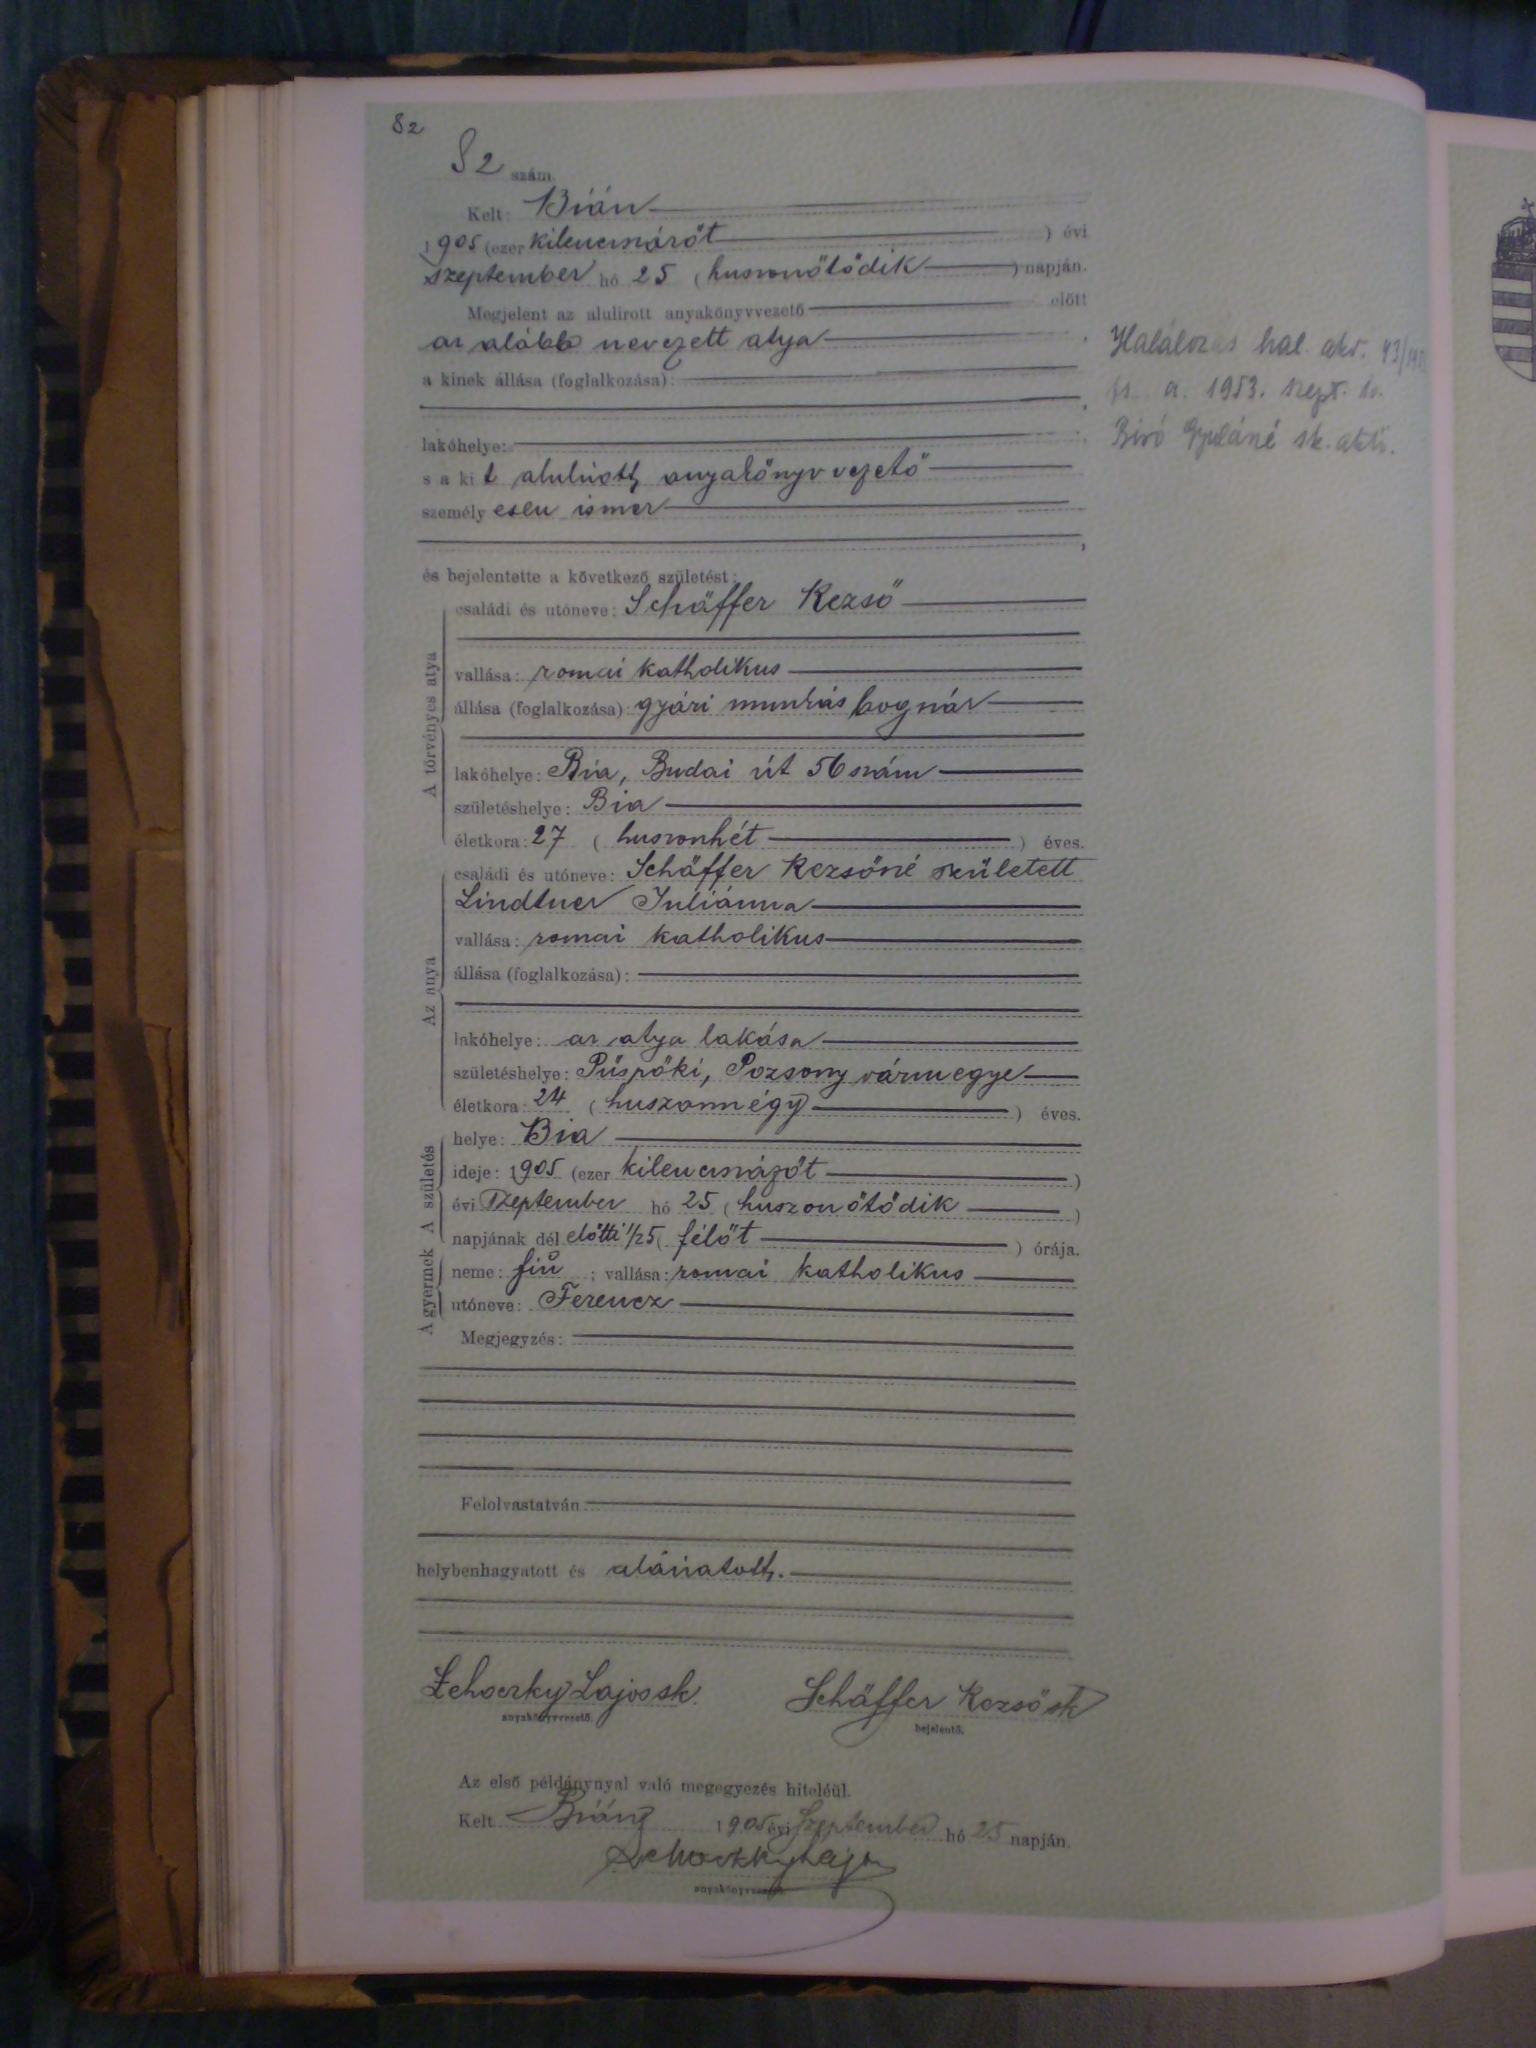 82
82 szám.
Kelt: Bián
1905 (ezer kilenczszázöt ) évi
szeptember hó 25 (huszonötödik ) napján.
Megjelent az alulirott anyakönyvvezető előtt
az alább nevezett atya
a kinek állása (foglalkozása):
lakóhelye:
s a kit alulirott anyakönyvvezető
személyesen ismer
és bejelentette a következő születést:
A törvényes atya
családi és utóneve: Schäffer Rezső
vallása: romai katholikus
állása (foglalkozása): gyári munkás bognár
lakóhelye: Bia, Budai út 56 szám
születéshelye: Bia
életkora: 27 (huszonhét ) éves.
Az anya
családi és utóneve: Schäffer Rezsőné született
Lindtner Juliánna
vallása: romai katholikus
állása (foglalkozása):
lakóhelye: az atya lakása
születéshelye: Püspöki, Pozsony vármegye
életkora: 24 (huszonnégy ) éves.
A születés
helye: Bia
ideje: 1905 (ezer kilenczszázöt )
évi szeptember hó 25 (huszonötödik )
napjának dél előtti 1/25 (félöt ) órája.
A gyermek
neme: fiú ; vallása: romai katholikus
utóneve: Ferencz
Megjegyzés:
Felolvastatván
helybenhagyatott és aláiratott.
Lajos sk. Schäffer Rezső sk
anyakönyvvezető. bejelentő.
Az első példánynyal való megegyezés hiteléül.
Kelt Bián 1905 évi Szeptember hó 25 napján.
Lajos
anyakönyvvezető.
hal. akv.
a. 1953. szept.
Biró Gyuláné sk.